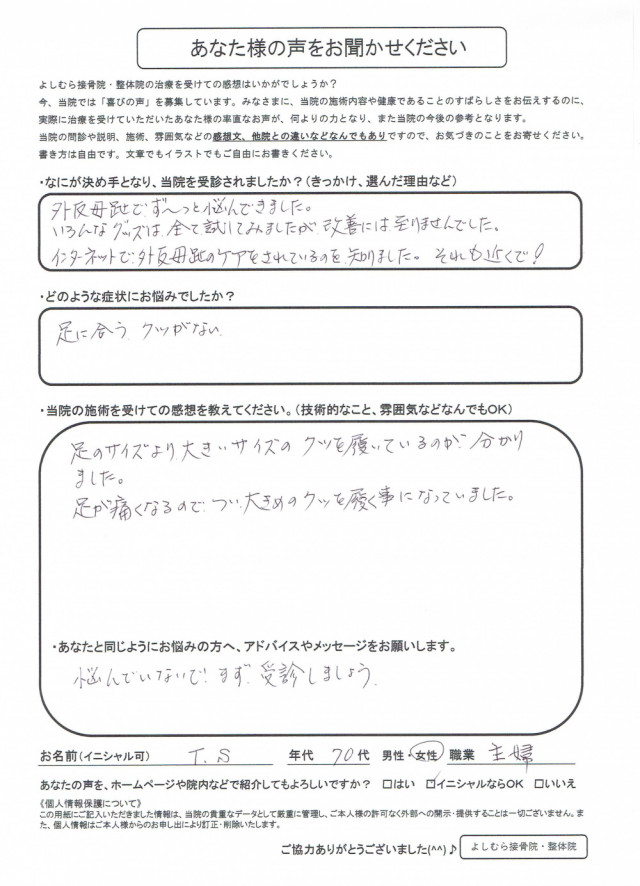 あなた様の声をお聞かせください
よしむら接骨院・整体院の治療を受けての感想はいかがでしょうか？
今、当院では「喜びの声」を募集しています。みなさまに、当院の施術内容や健康であることのすばらしさをお伝えするのに、
実際に治療を受けていただいたあなた様の率直なお声が、何よりの力となり、また当院の今後の参考となります。
当院の問診や説明、施術、雰囲気などの感想文、他院との違いなどなんでもありですので、お気づきのことをお寄せください。
書き方は自由です。文章でもイラストでもご自由にお書きください。
・なにが決め手となり、当院を受診されましたか？（きっかけ、選んだ理由など）
外反母趾でず〜っと悩んできました。
いろんなグッズは全て試してみましたが改善には至りませんでした。
インターネットで外反母趾のケアをされているのを知りました。それも近くで！
・どのような症状にお悩みでしたか？
足に合うクツがない
・当院の施術を受けての感想を教えてください。（技術的なこと、雰囲気などなんでもOK）
足のサイズより大きいサイズのクツを履いているのが分かり
ました。
足が痛くなるのでつい大きめのクツを履く事になっていました。
・あなたと同じようにお悩みの方へ、アドバイスやメッセージをお願いします。
悩んでいないでまず受診しましょう。
お名前（イニシャル可） T.S 年代 70代 男性・女性 職業 主婦
あなたの声を、ホームページや院内などで紹介してもよろしいですか？ □はい ☑イニシャルならOK □いいえ
《個人情報保護について》
この用紙にご記入いただきました情報は、当院の貴重なデータとして厳重に管理し、ご本人様の許可なく外部への開示・提供することは一切ございません。ま
た、個人情報はご本人様からのお申し出により訂正・削除いたします。
ご協力ありがとうございました(^^)♪ よしむら接骨院・整体院